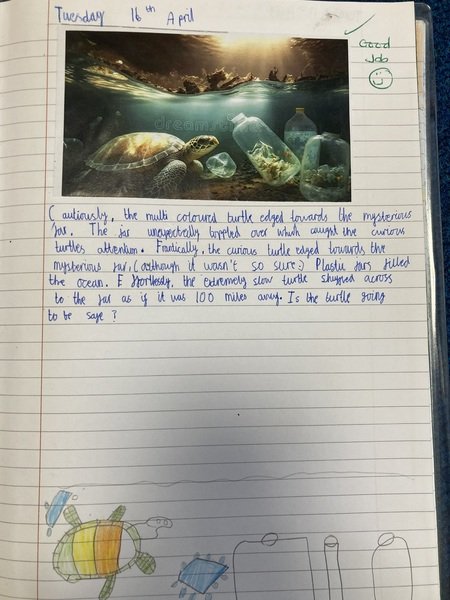 Tuesday 16th April
Good
Job
dreamstime
Cautiously, the multi coloured turtle edged towards the mysterious
jar. The jar unexpectedly toppled over which caught the curious
turtles attention. Frantically, the curious turtle edged towards the
mysterious jar, (although it wasn't so sure:) Plastic jars filled
the ocean. Effortlessly, the extremely slow turtle
across
to the jar as if it was 100 miles away. Is the turtle going
to be safe?